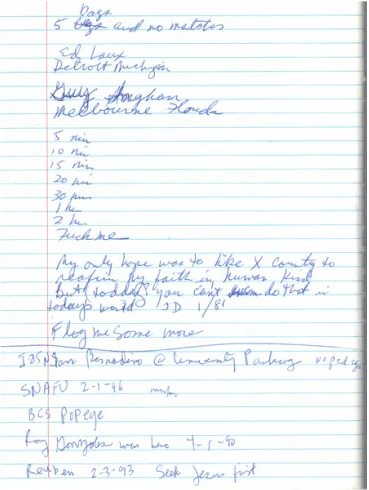 Days
5 and no matches
Ed Laux
Detroit Michigan
Melbourne Florida
5 min
10 min
15 min
20 min
30 min
1 hr
2 hr
Fuck me
My only hope was to hike X County to
reafirm my faith in human kind
But today you can't do that in
todays world JD 1/81
Flog me some more
@ University Parkway
SNAFU 2-1-96
BCS POPEYE
Ray Gonzales was here 4-1-90
Reuben 2-3-93 Seek Jesus first